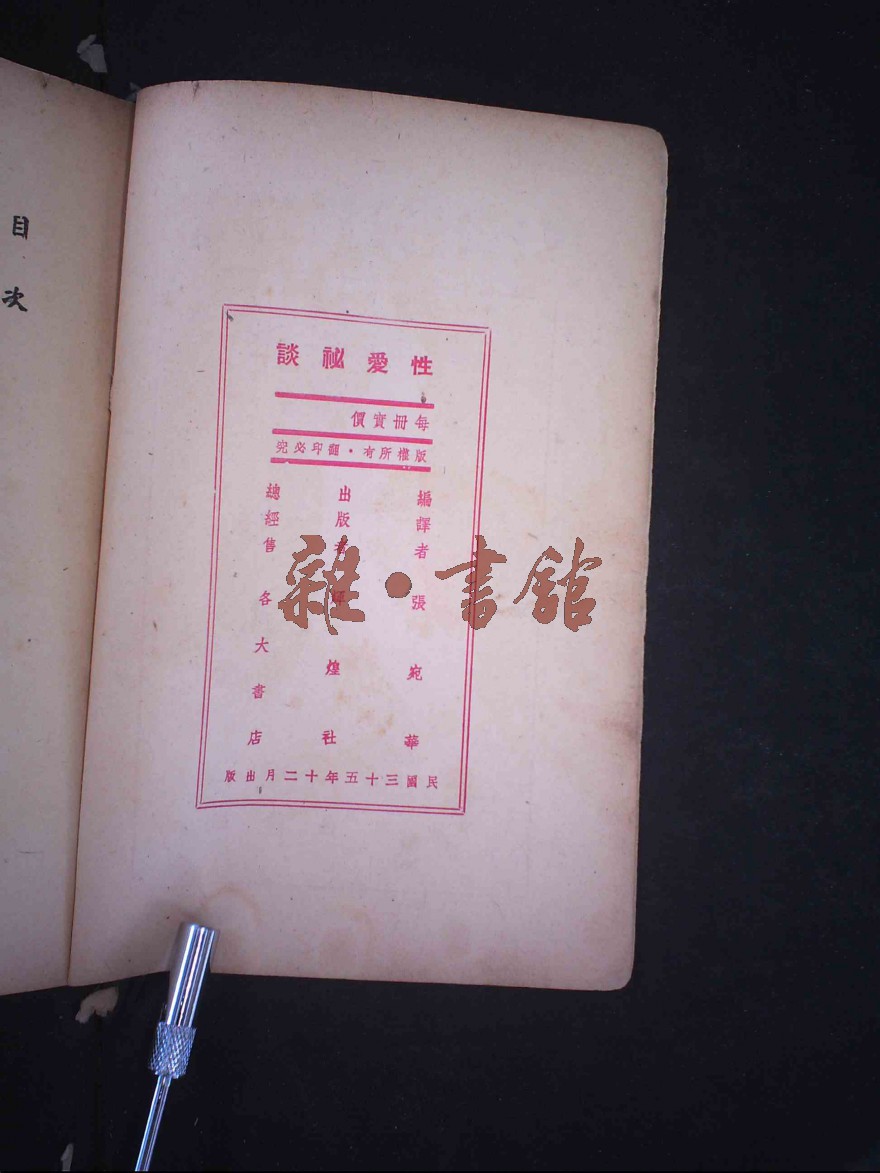 性愛祕談
每冊實價
版權所有・翻印必究
編譯者 張宛華
出版者 煌社
總經售 各大書店
民國三十五年十二月出版
目次
雜・書館